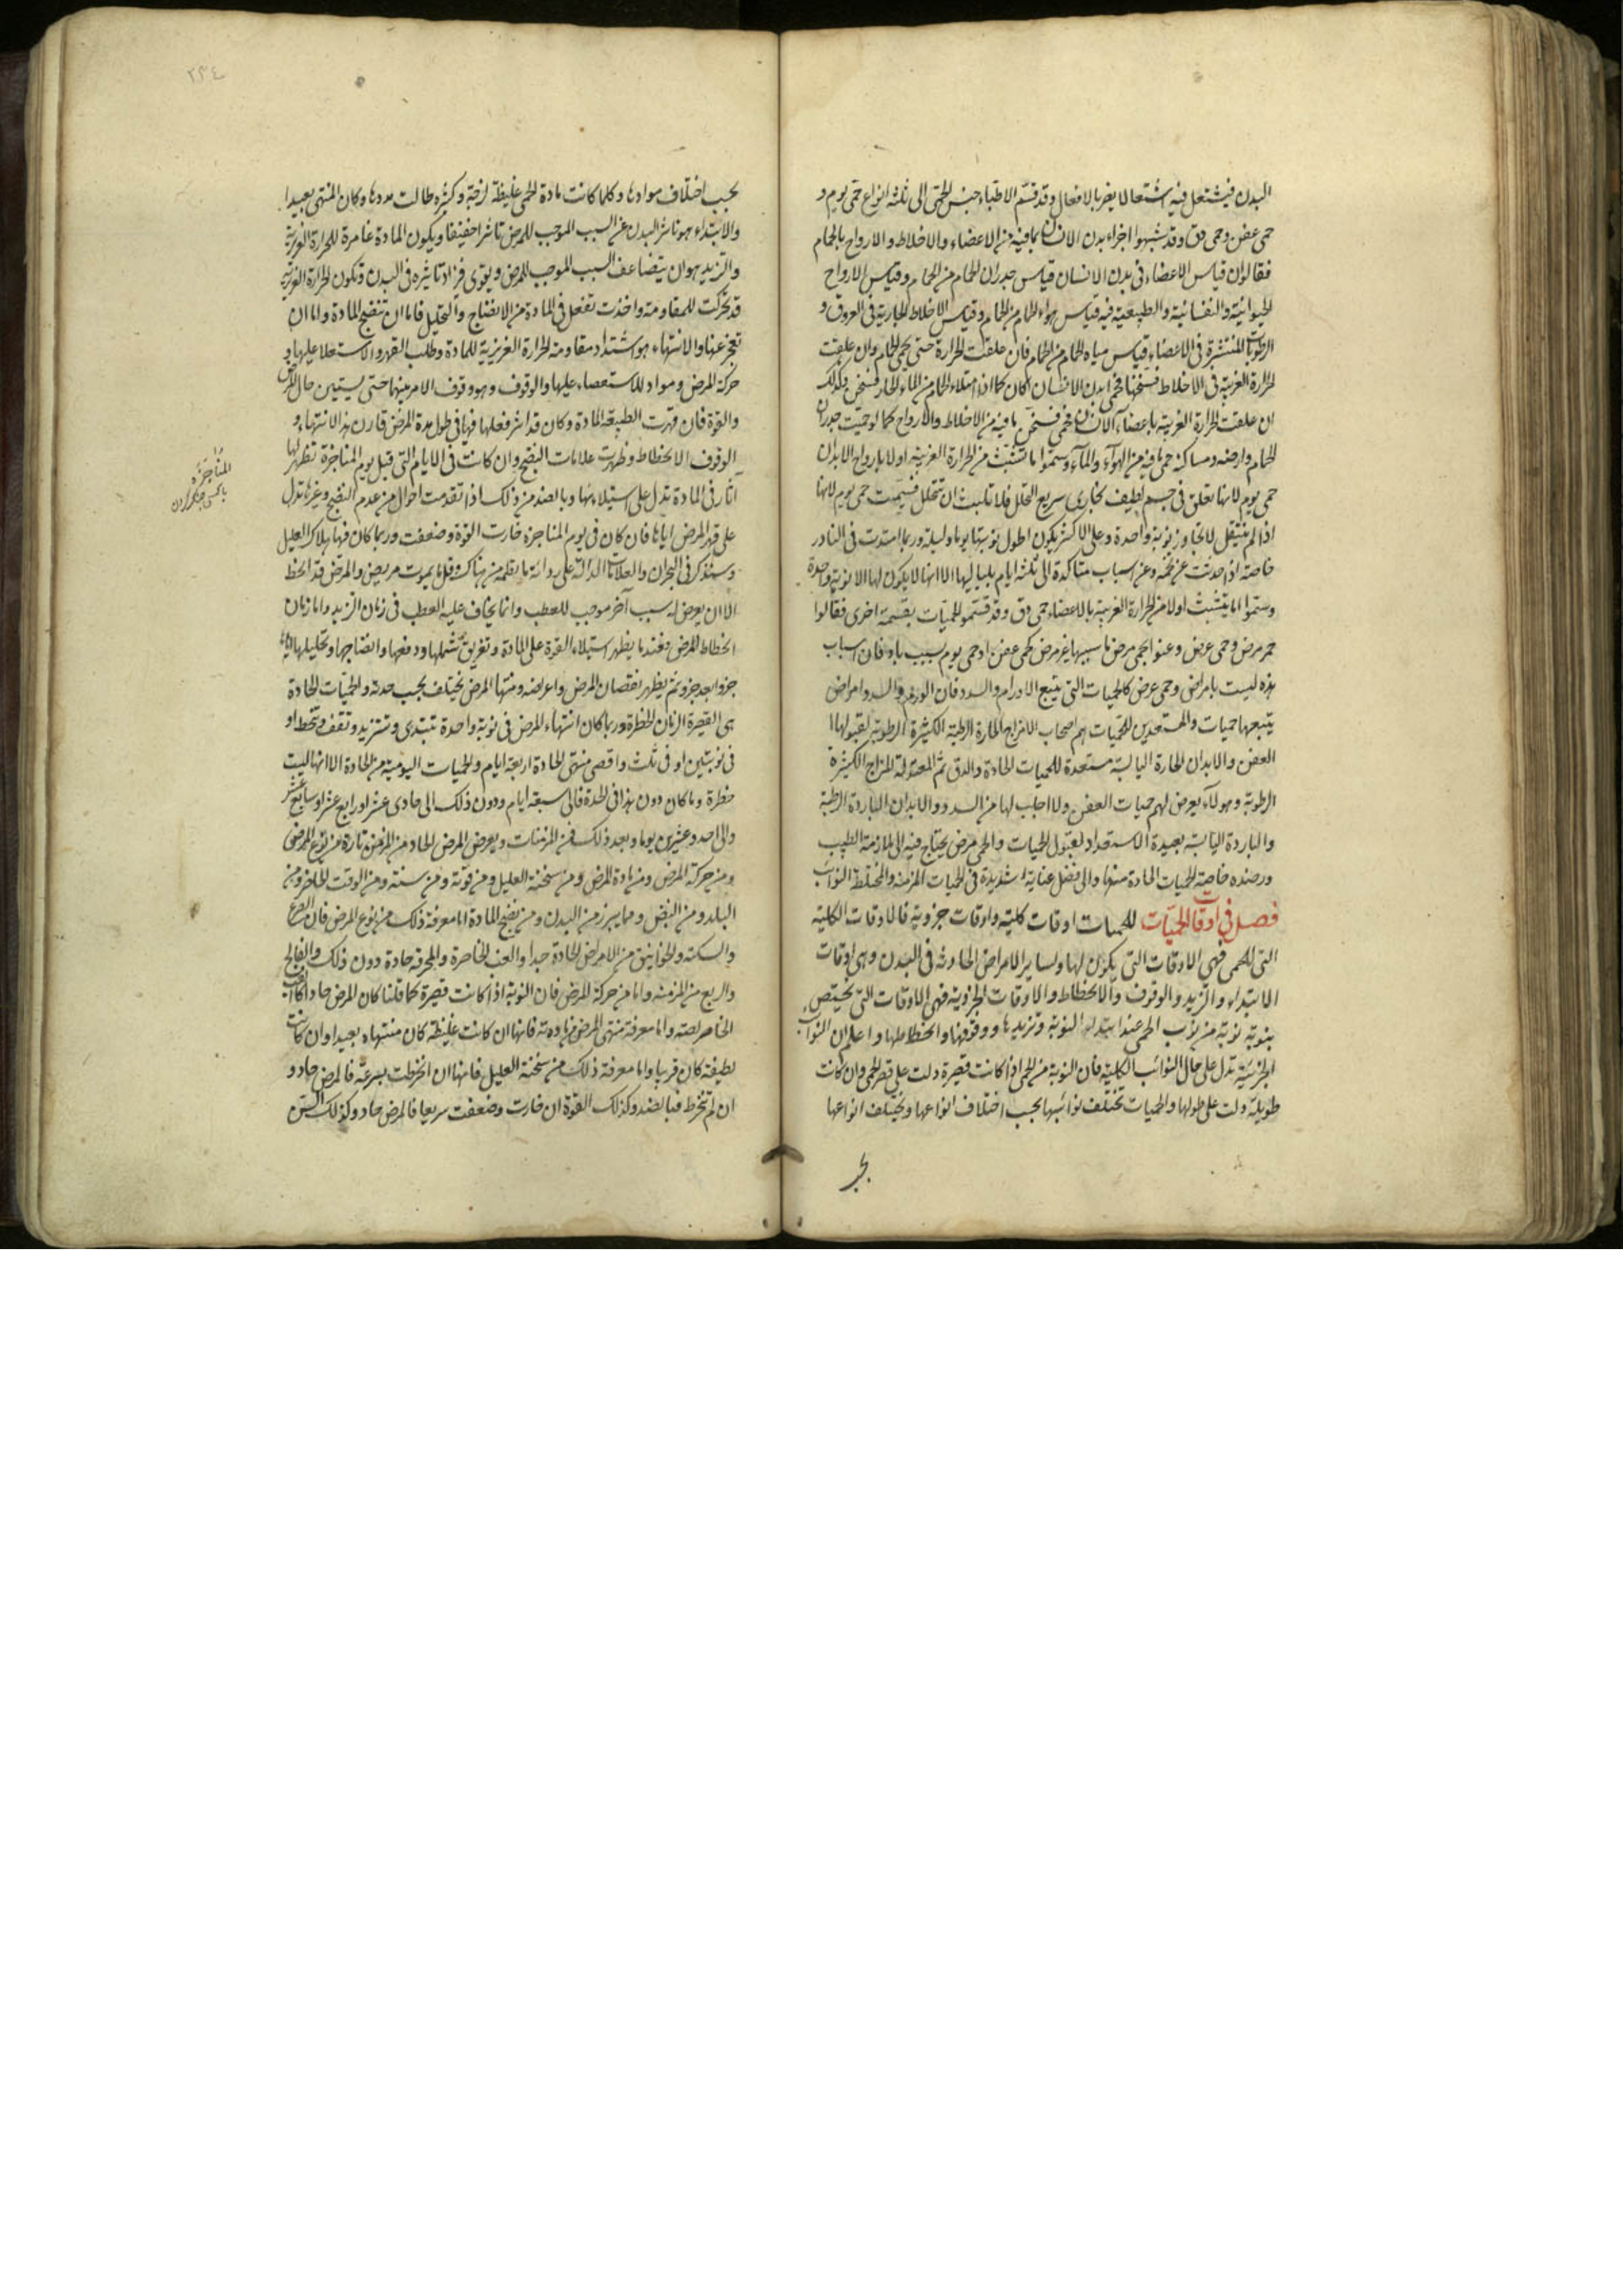 البدن فيشتعل فيه اشتعالا يضر بالافعال وقد قسم الاطباء جنس الحمى الى ثلثه انواع حمى يوم و
حمى عفن وحمى دق وقد شبهوا اجزاء بدن الانسان بما فيه من الاعضاء والاخلاط والارواح بالحمام
فقالوا ان قياس الاعضاء فى بدن الانسان قياس جدران الحمام من الحمام وقياس الارواح
الحيوانية والنفسانية والطبيعية فيه قياس هواء الحمام من الحمام وقياس الاخلاط الجارية فى العروق و
الرطوبات المنتشرة فى الاعضاء قياس مياه الحمام من الحمام فان علقت الحرارة حتى يحمى الحمام وان علقت
الحرارة الغريبة فى الاخلاط فسخنتها فحمى بدن الانسان كان كما اذا امتلاء الحمام من الماء الحار فسخن وكذلك
ان علقت الحرارة الغريبة باعضاء الانسان فحمى فسخن ما فيه من الاخلاط والارواح كما لو حميت جدران
الحمام وارضه ومساكنه حمى ما فيه من الهوآء والمآء وسموا ما تشبث من الحرارة الغريبة اولا بارواح الابدان
حمى يوم لانها تعلق فى جسم لطيف بخارى سريع التحلل فلا تلبث ان تتحلل فسميت حمى يوم لانها
اذا لم تنتقل لا تجاوز نوبة واحدة وعلى الاكثر يكون اطول نوبتها يوما وليلة وربما امتدت فى النادر
خاصة اذا حدثت عن تخمه وعن اسباب متاكدة الى ثلثه ايام بلياليها الا انها لا يكون لها الا نوبة واحدة
وسموا ما يتشبث اولا من الحرارة الغريبة بالاعضاء حمى دق وقد قسموا الحميات بقسمة اخرى فقالوا
حمى مرض وحمى عرض وعنوا بحمى مرض ما سببها غير مرض كحمى عفن او حمى يوم بسبب باد فان اسباب
هذه ليست بامراض وحمى عرض كالحميات التى يتبع الاورام والسدد فان الورم والسدد امراض
يتبعها حميات والمستعدين للحميات هم اصحاب الامزاج الحارة الرطبة الكثيرة الرطوبة لقبولها
العفن والابدان الحارة اليابسة مستعدة للحميات الحادة والدق ثم المعتدلة المزاج الكثيرة
الرطوبة وهولآء يعرض لهم حميات العفن ولا اجلب لها من السدد والابدان الباردة الرطبة
والباردة اليابسة بعيدة الاستعداد لقبول الحميات والحمى مرض يحتاج فيه الى ملازمة الطبيب
ورصده خاصة الحميات الحادة منها والى فضل عناية شديدة فى الحميات المزمنة والمختلطة النوائب
فصل فى اوقات الحميات للحميات اوقات كلية واوقات جزوية فالاوقات الكلية
التى للحمى فهى الاوقات التى يكون لها ولساير الامراض الحادثه فى البدن وهى اوقات
الابتداء والتزيد والوقوف والانحطاط والاوقات الجزوية فهى الاوقات التى يختص
بنوبة نوبة من نوب الحمى عند ابتداء النوبة وتزيدها ووقوفها وانحطاطها واعلم ان النوائب
الجزئية تدل على حال النوائب الكلية فان النوبة من الحمى اذا كانت قصيرة دلت على قصر الحمى وان كانت
طويلة دلت على طولها والحميات تختلف نوائبها بحسب اختلاف انواعها ويختلف انواعها
بحسب
٢٣٤
بحسب اختلاف موادها وكلما كانت مادة الحمى غليظة لزجة وكثيره طالت مددها وكان المنتهى بعيدا
والابتداء هو تاثر البدن عن السبب الموجب للمرض تاثرا خفيفا ويكون المادة غامرة للحرارة الغريزية
والتزيد هو ان يتضاعف السبب الموجب للمرض ويقوى فزاد تاثيره فى البدن وتكون الحرارة الغريزية
قد تحركت للمقاومة واخذت تفعل فى المادة من الانضاج والتحليل فاما ان تنضج المادة واما ان
تعجز عنها والانتهاء هو اشتداد مقاومة الحرارة الغريزية للمادة وطلب القهر والاستعلا عليها و
حركة المرض ومواده للاستعصاء عليها والوقوف وهو وقوف الامر بينهما حتى يستبين حال المرض
والقوة فان قهرت الطبيعة المادة وكان قد اشر فعلها فيها فى طول مدة المرض قارن هذا الانتهاء و
الوقوف الانحطاط وظهرت علامات النضج وان كانت فى الايام التى قبل يوم المناجزة تظهر لها
آثار فى المادة تدل على استيلاءها وبالضد من ذلك اذا تقدمت احوال من عدم النضج وغيرها تدل
على قهر المرض اياها فان كان فى يوم المناجزة خارت القوة وضعفت وربما كان فيها هلاك العليل
وسنذكر فى البحران والعلامات الدالة على رداءة ما يعلمه من هناك وقل ما يموت مريض والمرض قد انحط
الا ان يعرض له سبب آخر موجب للعطب وانما يخاف عليه العطب فى زمان التزيد واما زمان
انحطاط المرض فعندما يظهر استيلاء القوة على المادة وتفريق شملها ودفعها وانضاجها وتحليلها اياها
جزوا بعد جزو ثم يظهر نقصان المرض واعراضه ومنتهى المرض يختلف بحسب حدته والحميات الحادة
هى القصيرة الزمان الخطرة وربما كان انتهاء المرض فى نوبة واحدة تبتدى وتتزيد وتقف وتنحط او
فى نوبتين او فى ثلث واقصى منتهى الحادة اربعة ايام والحميات اليومية من الحادة الا انها ليست
خطرة وما كان دون هذا فى الحدة فالى سبعة ايام ودون ذلك الى حادى عشر او رابع عشر او سابع عشر
والى احد وعشرين يوما وبعد ذلك فمن المزمنات ويعرض المرض الحاد من المزمن تارة من نوع المرض
ومن حركة المرض ومن مادة المرض ومن سحنة العليل ومن قوته ومن سنه ومن الوقت الحاضر ومن
البلد ومن النبض ومما يبرز من البدن ومن نضج المادة اما معرفة ذلك من نوع المرض فان الصرع
والسكته والخوانيق من الامراض الحادة جدا والغب الخالصة والمحرقة حادة دون ذلك والفالج
والربع من المزمنه واما من حركة المرض فان النوبة اذا كانت قصيرة كما قلنا كان المرض حادا كالغب
الخالصه واما معرفة منتهى المرض من مادته فانها ان كانت غليظة كان منتهاه بعيدا وان كانت
لطيفة كان قريبا واما معرفة ذلك من سحنة العليل فانها ان انخرطت بسرعة فالمرض حاد و
ان لم تنخرط فبالضد وكذلك القوة ان خارت وضعفت سريعا فالمرض حاد وكذلك السن
المناجزة